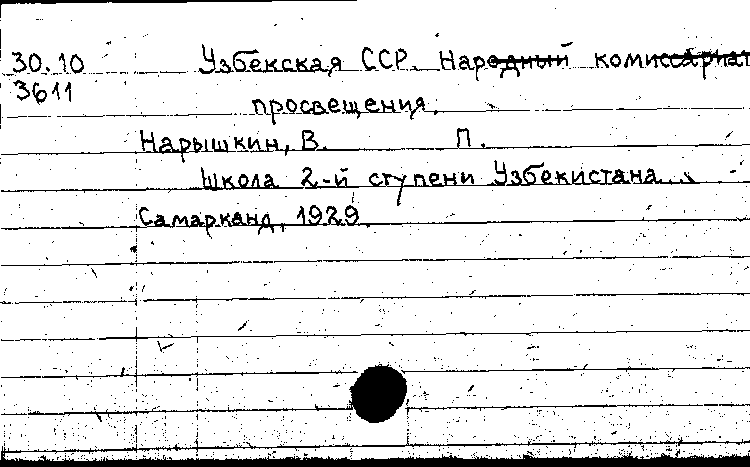 30.10 Узбекская ССР. Народный комиссариат
3611 просвещения.
Нарышкин, В. П.
Школа 2-й ступени Узбекистана.
Самарканд, 1929.